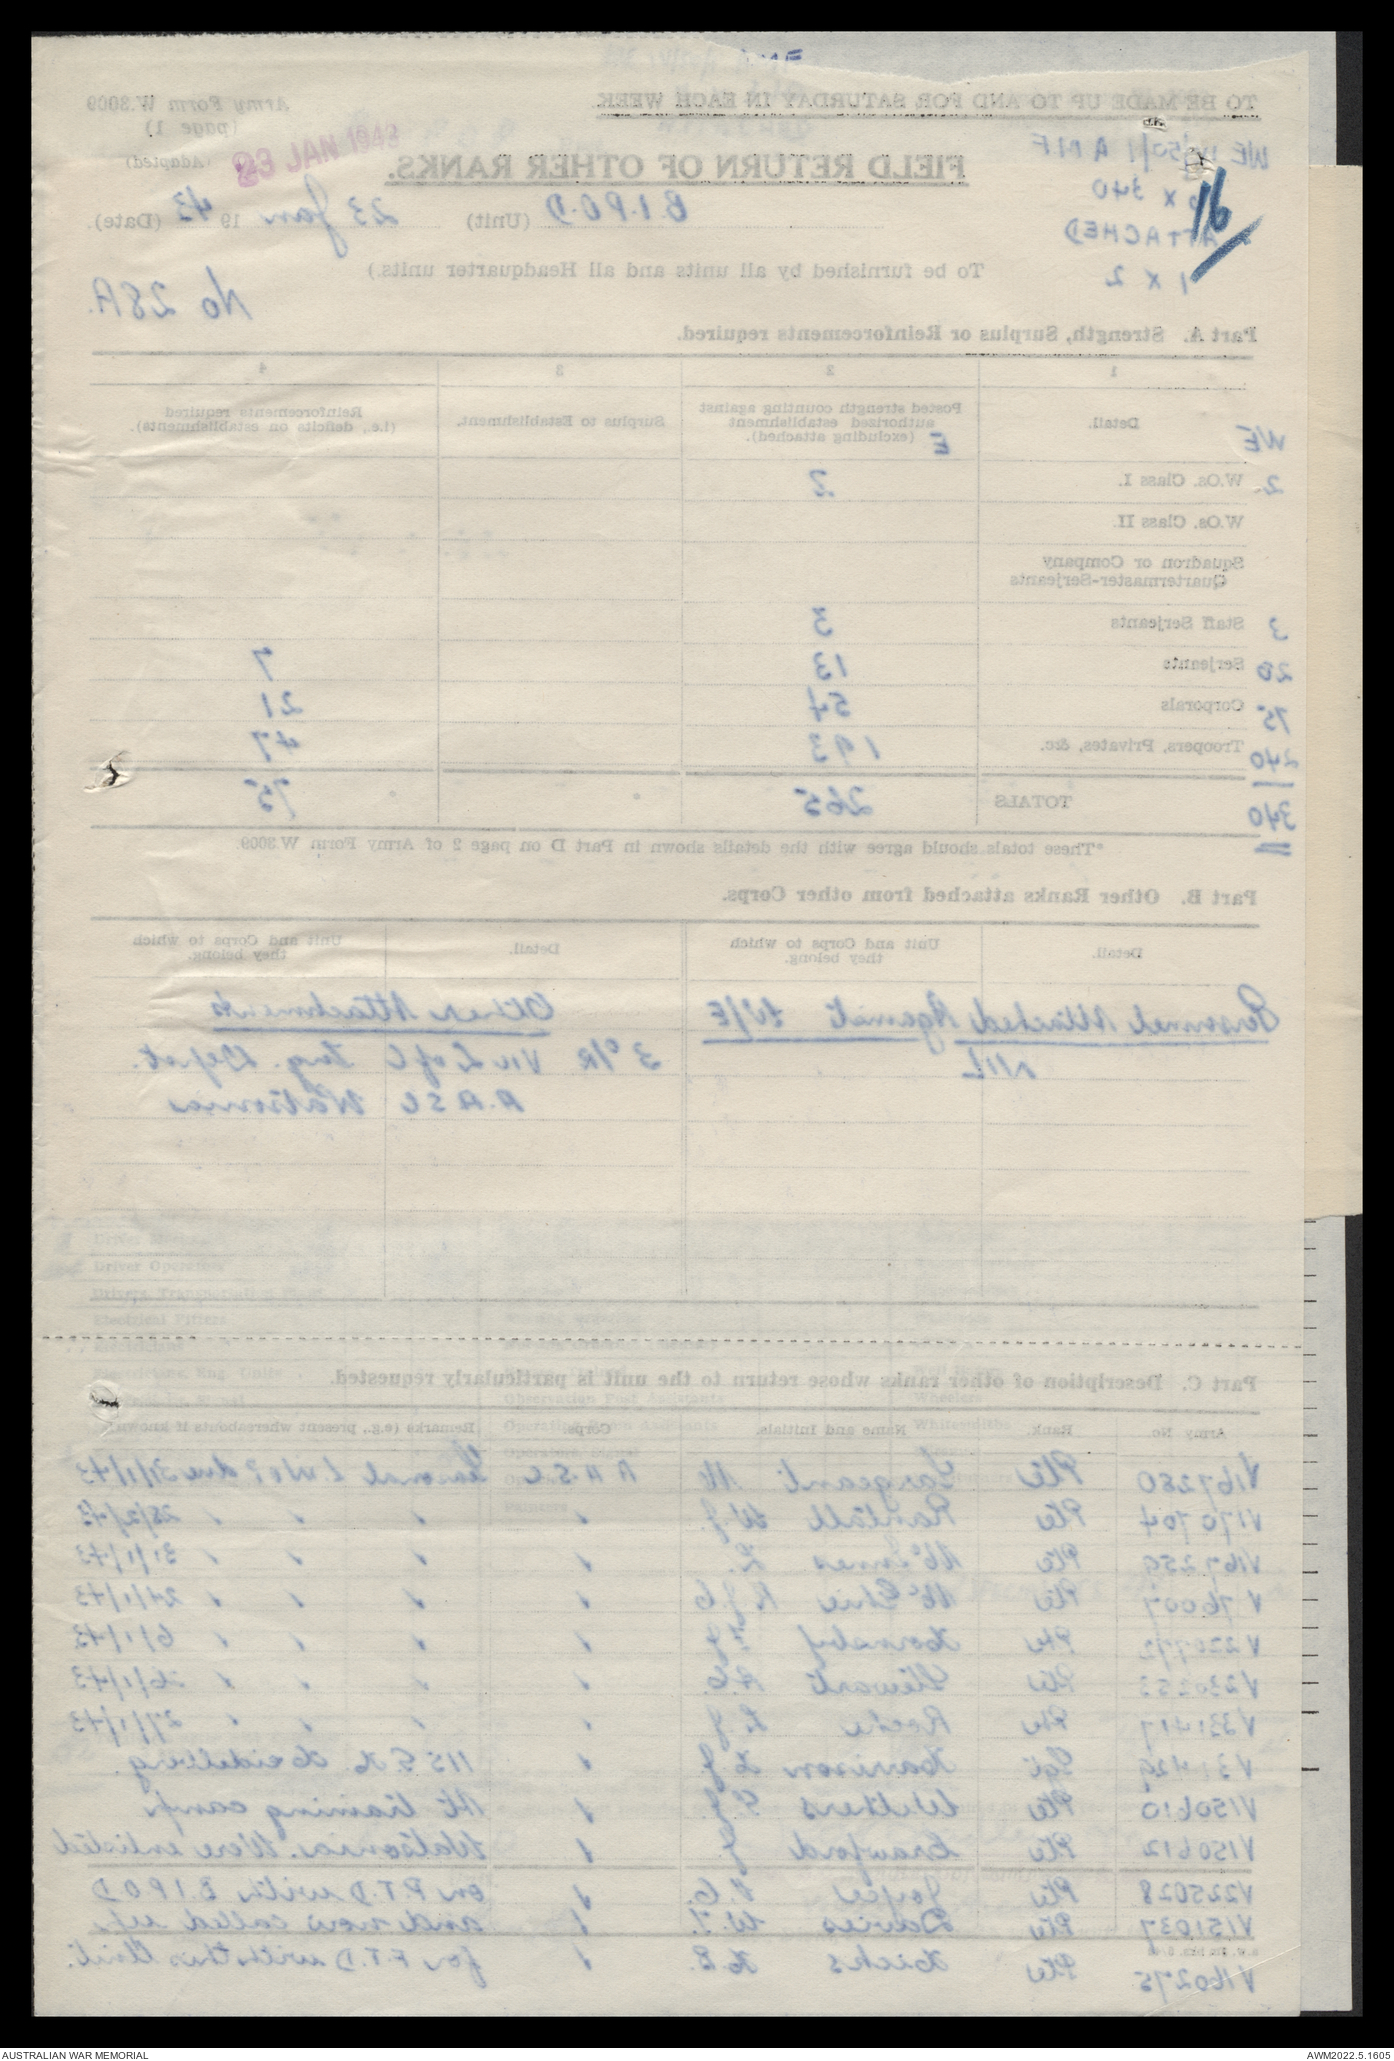 TO BE MADE UP TO AND FOR SATURDAY IN EACH WEEK
Army Form W.3009
(page 1)
(Adapted)
23 JAN 1943
16
FIELD RETURN OF OTHER RANKS.
x 340
ATTACHED
1 x 2
B.I.P.O.D (Unit) 23 Jan 19 43 (Date)
To be furnished by all units and all Headquarter units.)
No 28A.
Part A. Strength, Surplus or Reinforcements required.
1 2 3 4
WE Detail. Posted strength counting against authorized establishment (excluding attached). E Surplus to Establishment. Reinforcements required (i.e., deficits on establishments).
2 W.Os. Class I. 2
W.Os. Class II.
Squadron or Company
Quartermaster-Serjeants
3 Staff Serjeants 3
20 Serjeants 13 7
75 Corporals 54 21
240 Troopers, Privates, &c. 193 47
340 TOTALS 265 75
*These totals should agree with the details shown in Part D on page 2 of Army Form W.3009.
Part B. Other Ranks attached from other Corps.
Detail. Unit and Corps to which they belong. Detail. Unit and Corps to which they belong.
Personnel Attached Against W/E Other Attachments
NIL 3 O/R Vic L of C Trg. Depot.
A.A.S.C Watsonia
Driver Operators
Electrical Fitters
Electricians
Part C. Description of other ranks whose return to the unit is particularly requested.
Army No. Rank Name and Initials. Corps Remarks (e.g., present whereabouts if known)
V167280 Pte Sargeant W A.A.S.C. Seasonal L.W.O.P due 31/1/43
V170704 Pte Rantall W.J. " " " " 28/2/43
V167259 Pte McInnes L. " " " " 31/1/43
V76007 Pte McGhie R.J.C " " " " 24/1/43
V220772 Pte Hornsby " " " " 6/1/43
V230253 Pte Stewart A.C. " " " " 26/1/43
V331417 Pte Roche L.J. " " " " 27/1/43
V31429 Sgt Harrison H.J. " 115 G.H. Heidelberg.
V150610 Pte Withers " At training camp
V150612 Pte Crawford J. " Watsonia. Were enlisted
V225028 Pte Joyce V.C. " on P.T.D with B.I.P.O.D
V151037 Pte Davies W.T. " and now called up
V160275 Pte Hicks H.B. " for F.T.D with this Unit.
AUSTRALIAN WAR MEMORIAL
AWM2022.5.1605